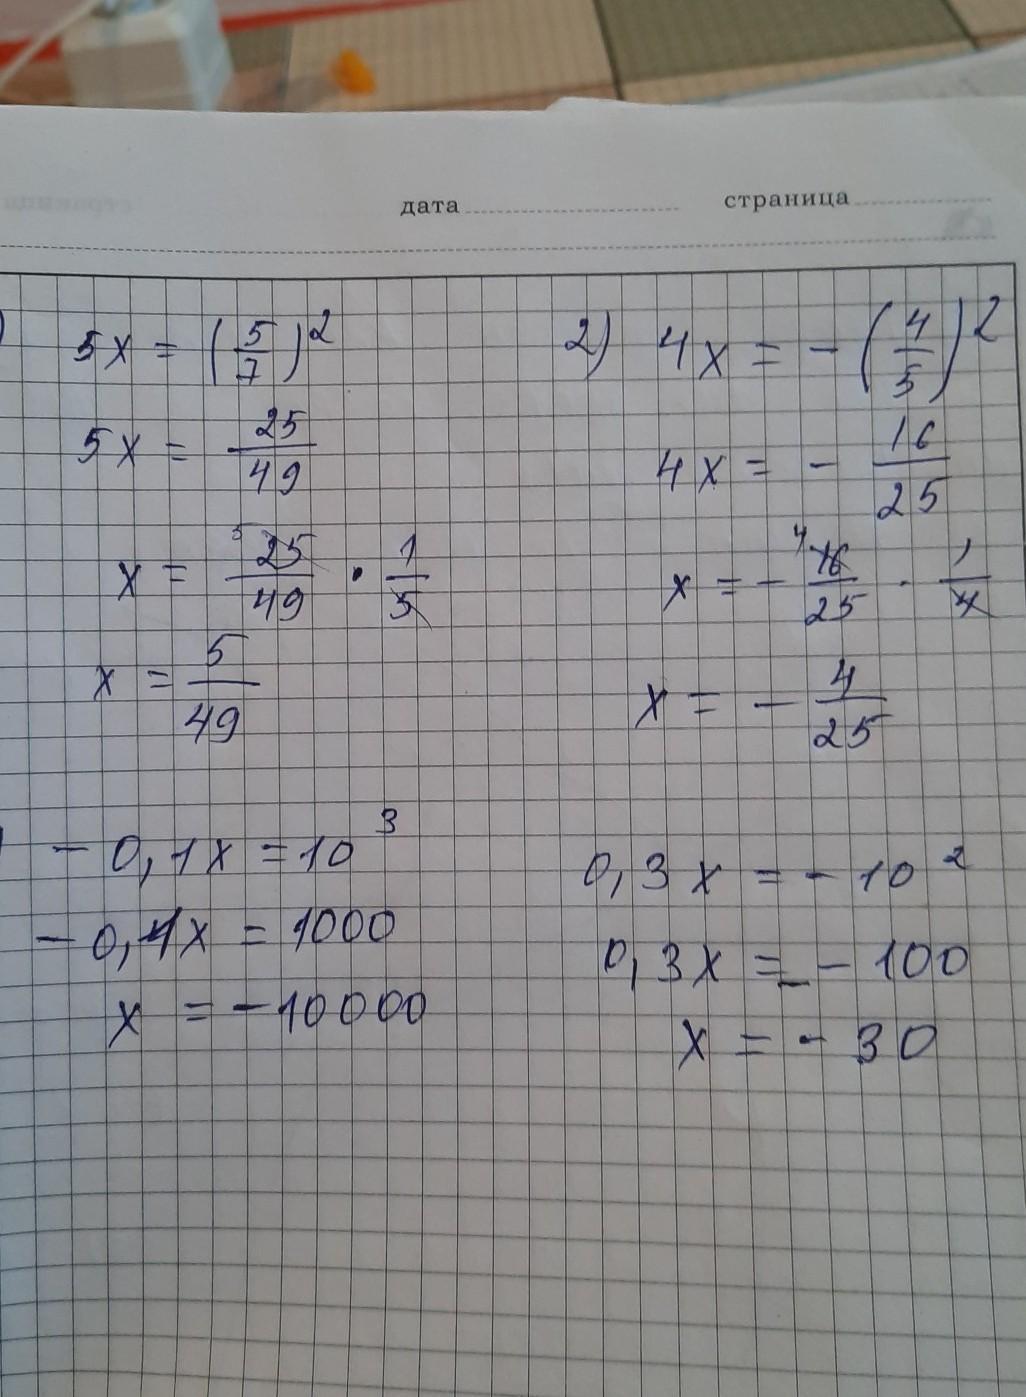 дата страница
) 5x = (5/7)²
5x = 25/49
x = ⁵25/49 · 1/5
x = 5/49
2) 4x = - (4/5)²
4x = - 16/25
x = - ⁴16/25 · 1/4
x = - 4/25
) - 0,1x = 10³
- 0,1x = 1000
x = - 10000
0,3x = - 10²
0,3x = - 100
x = - 30